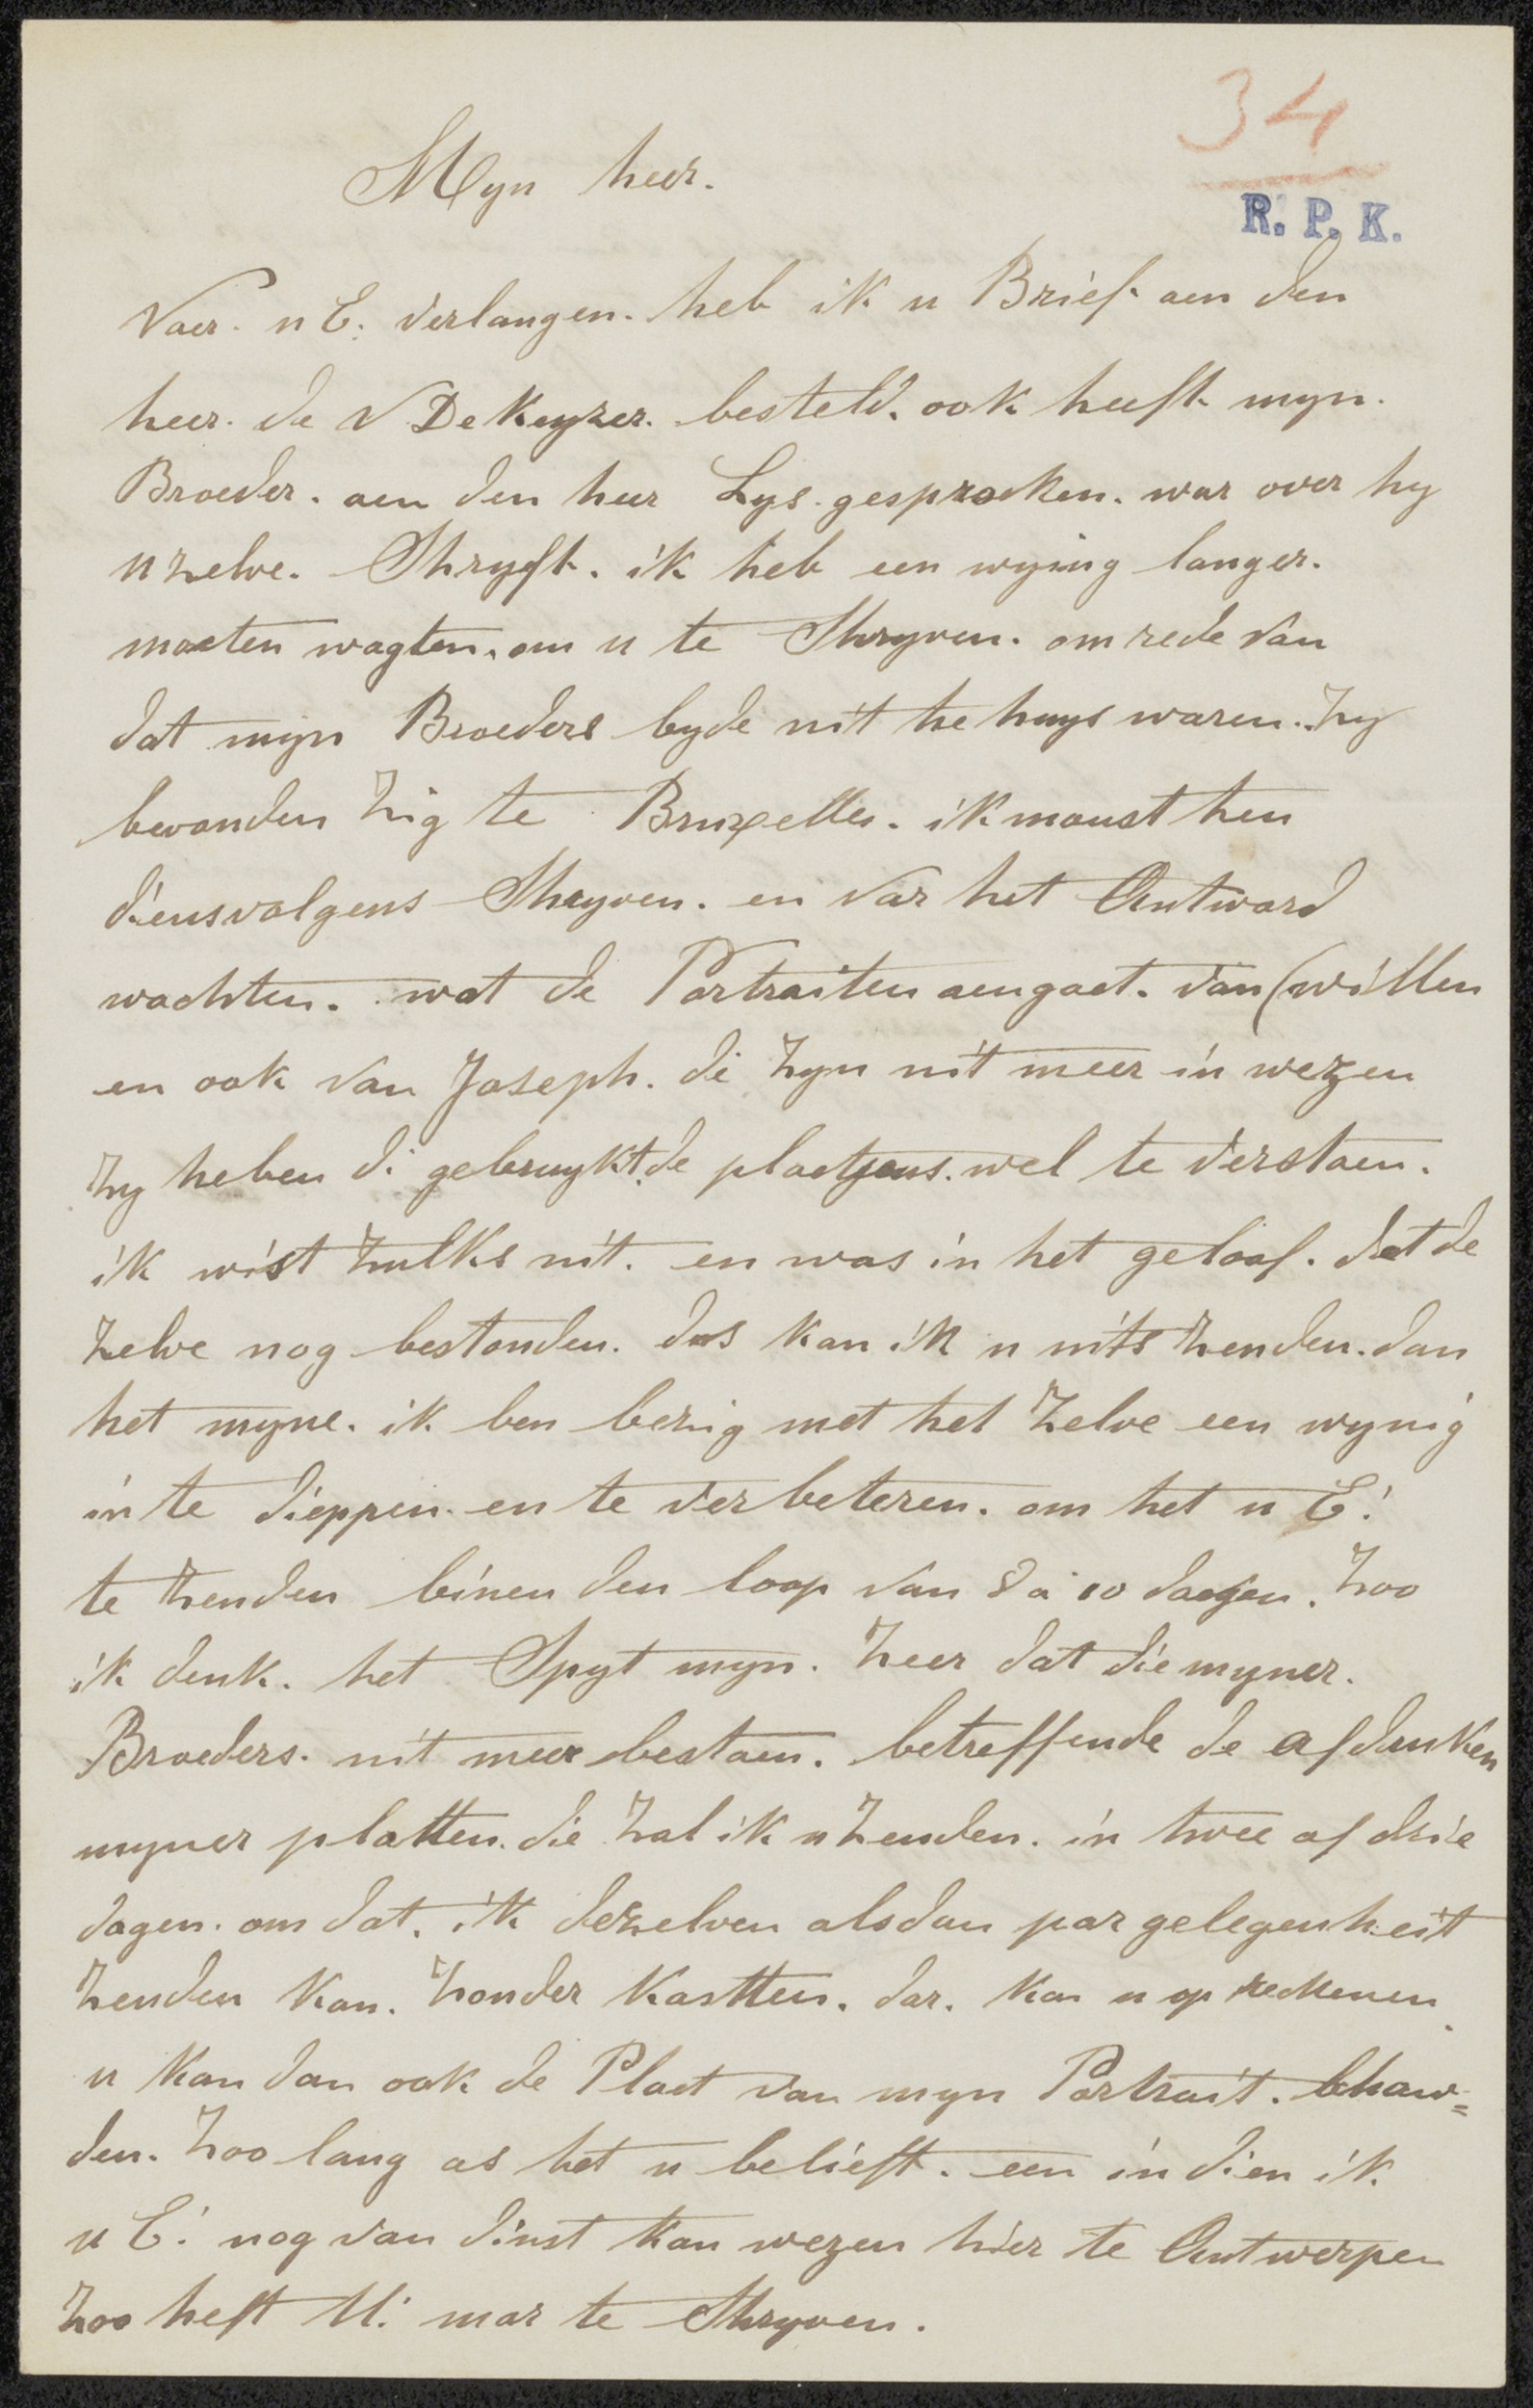 34
R. P. K.
Myn heer.
Voer. u E. verlangen. heb ik u Brief aen den
heer. de V De Keyzer. besteld. ook heeft myn.
Broeder. aen den heer Lys. gesprocken. war over hy
u zelve. Shryft. ik heb een wying langer.
moeten wagten. om u te Shryven. om rede van
dat myn Broeders byde nit te huys waren. zy
bevonden zig te Bruxelles. ik moust hen
diensvolgens Shryven. en var het Antword
wachten. wat de Portraiten aengaet. van (willen
en ook van Joseph. di zyn nit meer in wezen
zy heben di gebruykt. de plaetjens. wel te verstaen.
ik wist zulks nit. en was in het geloof. dat de
zelve nog bestonden. dus kan ik u nits zenden. dan
het myne. ik ben bezig met het zelve een wynig
in te dieppen. en te verbeteren. om het u E.
te zenden binen den loop van 8 a 10 dagen. zoo
ik denk. het Spyt myn. zeer dat die myner.
Broeders. nit meer bestaen. betreffende de afdruken
myner platten. die zal ik u zenden. in twee of drie
dagen. om dat. ik dezelven alsdan par gelegenheit
zenden kan. zonder kastten. dar. kan u op reckenen.
u kan dan ook de Plaet van myn Portrait. behaw=
den. zoo lang as het u belieft. een in dien ik
u E. nog van dinst kan wezen hier te Antwerpen
zoo heft U. mar te Shryven.